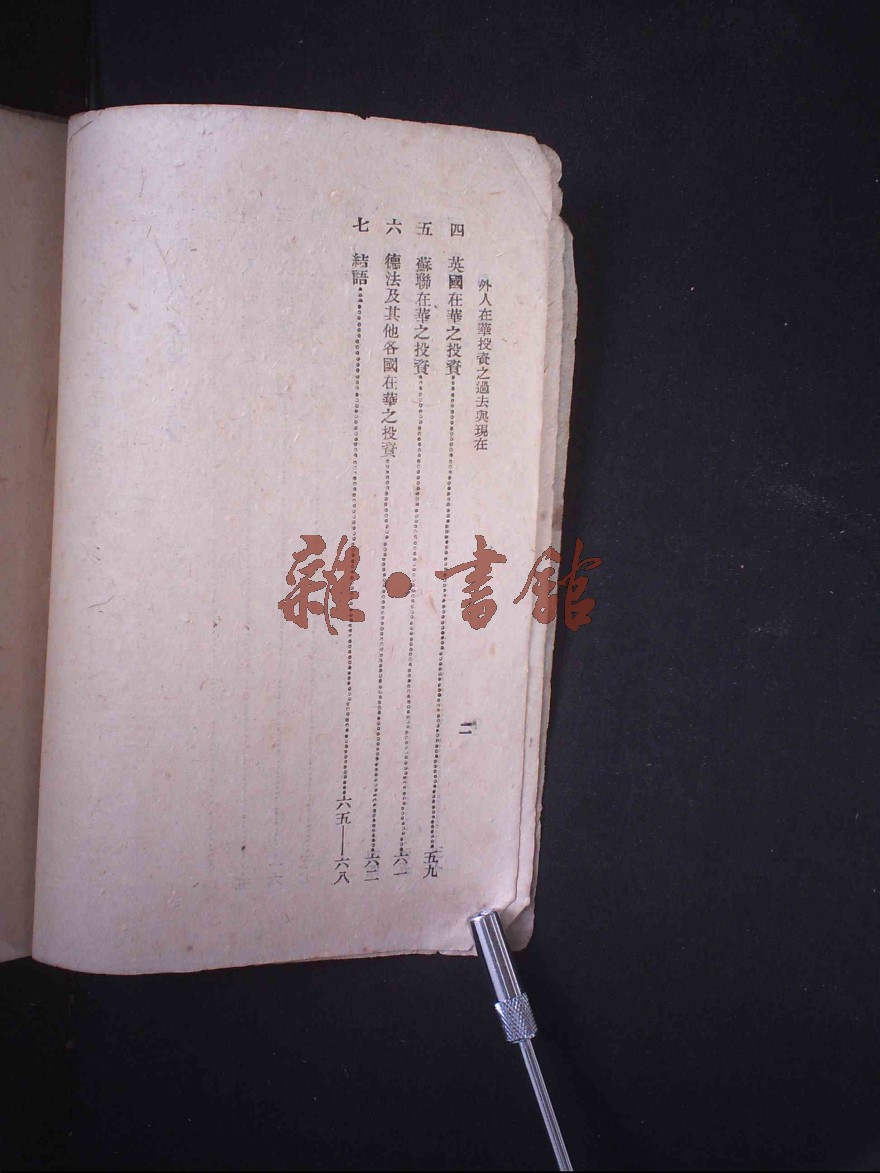 外人在華投資之過去與現在
二
四 英國在華之投資 五九
五 蘇聯在華之投資 六一
六 德法及其他各國在華之投資 六二
七 結語 六五——六八
雜·書館